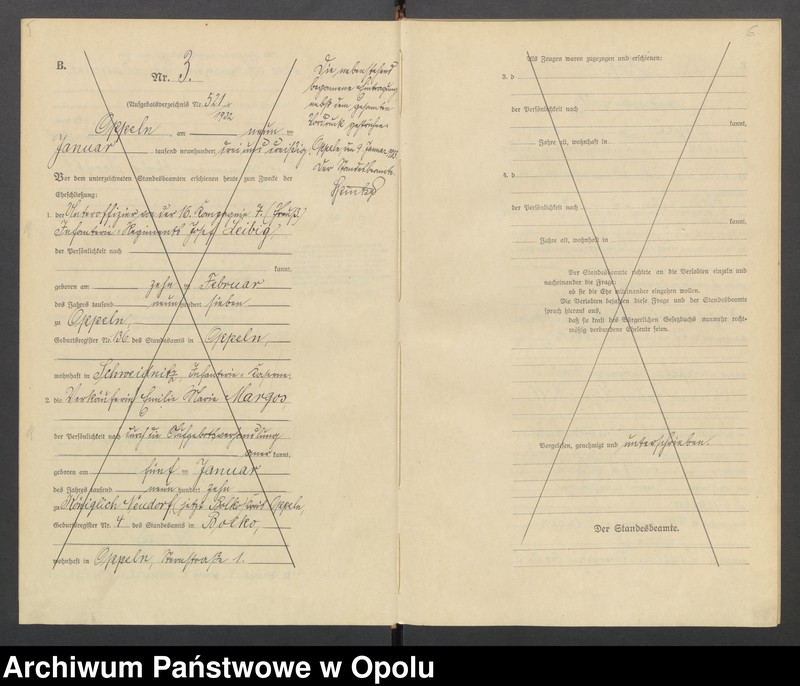 B.
Nr. 3.
(Aufgebotsverzeichnis Nr. 521
1932
Oppeln am neun ten
Januar tausend neunhundert dreiunddreißig.
Vor dem unterzeichneten Standesbeamten erschienen heute zum Zwecke der
Eheschließung:
1. der Unteroffizier der 16. Kompagnie 7. (Preuß.)
Infanterie-Regiments Josef Leibig,
der Persönlichkeit nach
kannt,
geboren am zehn ten Februar
des Jahres tausend neunhundert sieben
zu Oppeln,
Geburtsregister Nr. 136 des Standesamts in Oppeln,
wohnhaft in Schweidnitz, Infanterie-Kaserne;
2. die Verkäuferin Emilie Marie Margos,
der Persönlichkeit nach durch die Aufgebotsverhandlung
aner kannt,
geboren am fünf ten Januar
des Jahres tausend neun hundert zehn
zu Königlich Neudorf (jetzt Bolko Kreis Oppeln,
Geburtsregister Nr. 4 des Standesamts in Bolko,
wohnhaft in Oppeln, Sternstraße 1.
Die nebenstehend
begonnene Eintragung
nebst dem gesamten
Vordruck gestrichen.
Oppeln, am 9. Januar 1933
Der Standesbeamte.
6
Als Zeugen waren zugezogen und erschienen:
3. d
der Persönlichkeit nach
kannt,
Jahre alt, wohnhaft in
4. d
der Persönlichkeit nach
kannt,
Jahre alt, wohnhaft in
Der Standesbeamte richtete an die Verlobten einzeln und
nacheinander die Frage:
ob sie die Ehe miteinander eingehen wollen.
Die Verlobten bejahten diese Frage und der Standesbeamte
sprach hierauf aus,
daß sie kraft des Bürgerlichen Gesetzbuchs nunmehr recht-
mäßig verbundene Eheleute seien.
Vorgelesen, genehmigt und unterschrieben.
Der Standesbeamte.
Archiwum Państwowe w Opolu